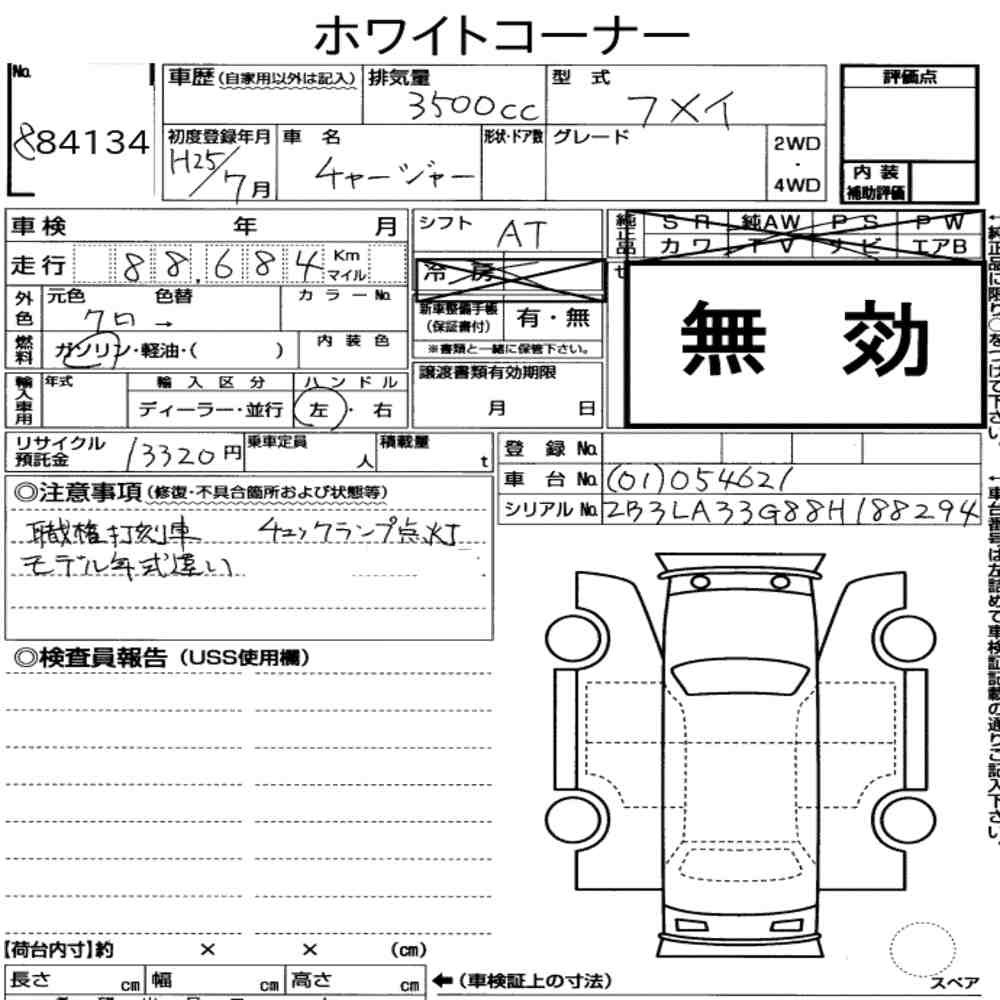 ホワイトコーナー
No.
884134
車歴(自家用以外は記入)
排気量
3500cc
型 式
フメイ
評価点
初度登録年月
H25/7月
車 名
チャージャー
形状・ドア数
グレード
2WD
・
4WD
内 装
補助評価
車検 年 月
シフト
AT
純正品
SR 純AW PS PW
カワ TV ナビ エアB
走行 88,684 Km
マイル
冷 房
無 効
外色
元色 色替 カラーNo.
クロ →
新車整備手帳
(保証書付)
有・無
※書類と一緒に保管下さい。
燃料
ガソリン・軽油・( )
内 装 色
譲渡書類有効期限
月 日
輸入車用
年式
輸 入 区 分
ハ ン ド ル
ディーラー・並行
左・右
リサイクル
預託金
13320円
乗車定員
人
積載量
t
登 録 No.
車 台 No.
(01)054621
シリアルNo.
2B3LA33G88H188294
◎注意事項(修復・不具合箇所および状態等)
職権打刻車 チェックランプ点灯
モデル年式違い
◎検査員報告(USS使用欄)
←純正品に限り○をつけて下さい。
←車台番号は左詰めで車検証記載の通りご記入下さい。
【荷台内寸】約 × × (cm)
長さ cm 幅 cm 高さ cm
←(車検証上の寸法)
スペア